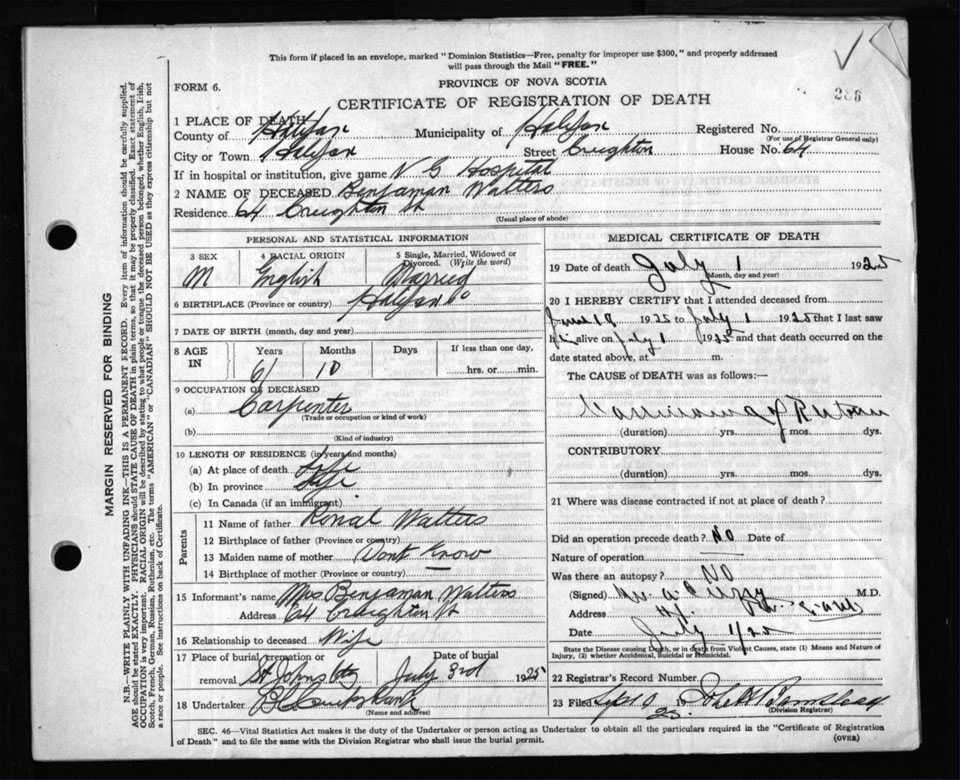 This form if placed in an envelope, marked "Dominion Statistics—Free, penalty for improper use $300," and properly addressed
will pass through the Mail "FREE."
286
FORM 6.
PROVINCE OF NOVA SCOTIA
CERTIFICATE OF REGISTRATION OF DEATH
1 PLACE OF DEATH
County of Halifax Municipality of Halifax Registered No.
(For use of Registrar General only)
City or Town Halifax Street Creighton House No. 64
If in hospital or institution, give name V G Hospital
2 NAME OF DECEASED Benjaman Walters
Residence 64 Creighton St
(Usual place of abode)
PERSONAL AND STATISTICAL INFORMATION
3 SEX 4 RACIAL ORIGIN 5 Single, Married, Widowed or Divorced. (Write the word)
M English Married
6 BIRTHPLACE (Province or country) Halifax Co
7 DATE OF BIRTH (month, day and year)
8 AGE IN Years Months Days If less than one day,
61 10 hrs. or min.
9 OCCUPATION OF DECEASED
(a) Carpenter
(Trade or occupation or kind of work)
(b)
(Kind of industry)
10 LENGTH OF RESIDENCE (in years and months)
(a) At place of death Life
(b) In province Life
(c) In Canada (if an immigrant)
Parents
11 Name of father Walters
12 Birthplace of father (Province or country)
13 Maiden name of mother Dont Know
14 Birthplace of mother (Province or country)
15 Informant's Name Mrs Benjaman Walters
Address 64 Creighton St
16 Relationship to deceased Wife
17 Place of burial, cremation or removal St Johns Date of burial July 3rd 1925
18 Undertaker
(Name and address)
MEDICAL CERTIFICATE OF DEATH
19 Date of death July 1 1925
(Month, day and year)
20 I HEREBY CERTIFY that I attended deceased from
June 19 1925 to July 1 1925 that I last saw
him alive on July 1 1925 and that death occurred on the
date stated above, at m.
The CAUSE of DEATH was as follows:—
Carcinoma of
(duration) yrs. mos. dys.
CONTRIBUTORY
(duration) yrs. mos. dys.
21 Where was disease contracted if not at place of death?
Did an operation precede death? No Date of
Nature of operation
Was there an autopsy? NO
(Signed) M.D.
Address
Date July 1/25
State the Disease causing Death, or in death from Violent Causes, state (1) Means and Nature of
Injury, (2) whether Accidental, Suicidal or Homicidal.
22 Registrar's Record Number
23 Filed 25
(Division Registrar)
SEC. 46—Vital Statistics Act makes it the duty of the Undertaker or person acting as Undertaker to obtain all the particulars required in the "Certificate of Registration
of Death" and to file the same with the Division Registrar who shall issue the burial permit.
(OVER)
MARGIN RESERVED FOR BINDING
N.B.—WRITE PLAINLY WITH UNFADING INK—THIS IS A PERMANENT RECORD. Every item of information should be carefully supplied.
AGE should be stated EXACTLY. PHYSICIANS should STATE CAUSE OF DEATH in plain terms, so that it may be properly classified. Exact statement of
OCCUPATION is very important. RACIAL ORIGIN will be described by stating to what people or tongue the deceased person belonged, whether English, Irish,
Scotch, French, German, Russian, Ruthenian, etc. The terms "AMERICAN" or "CANADIAN" SHOULD NOT BE USED as they express citizenship but not
a race or people. See instructions on back of Certificate.